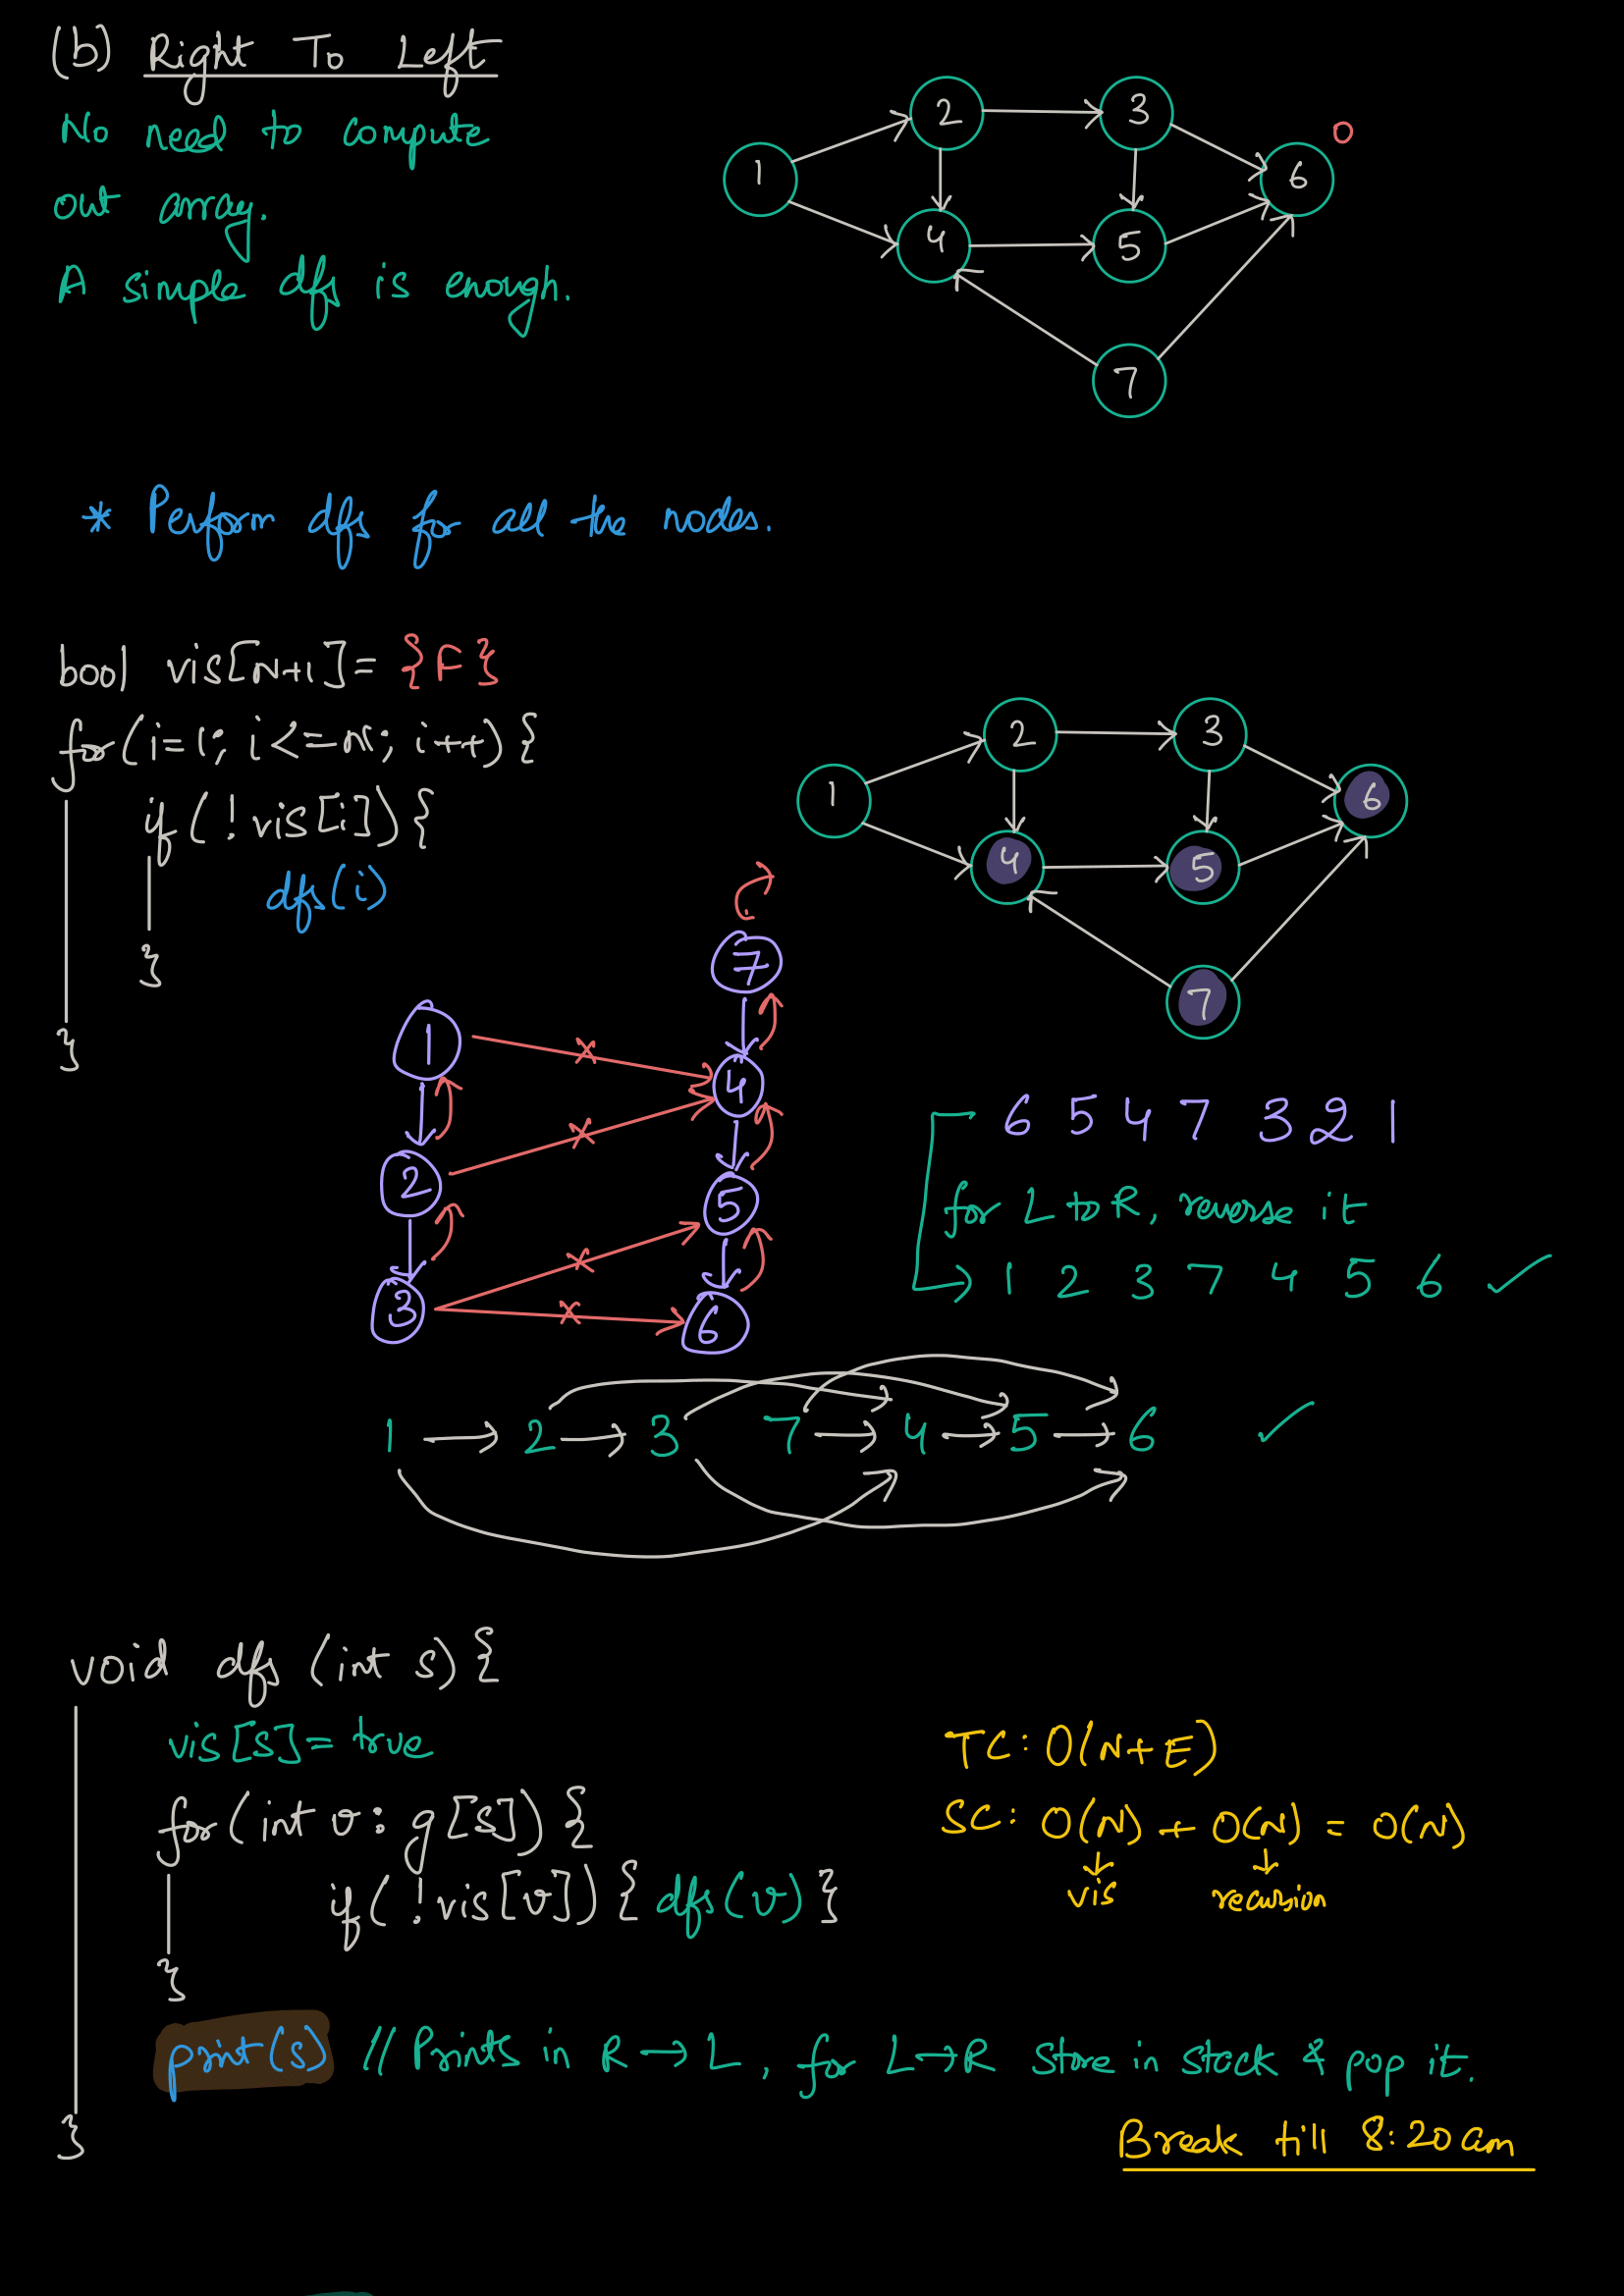 (b) Right To Left
No need to compute
out array.
A simple dfs is enough.
2 3
1 6 0
4 5
7
* Perform dfs for all the nodes.
bool vis[N+1]= {F}
for(i=1; i<=N; i++){
if(!vis[i]){
dfs(i)
}
}
2 3
1 6
4 5
7
7
1 4
2 5
3 6
6 5 4 7 3 2 1
for L to R, reverse it
→ 1 2 3 7 4 5 6 ✓
1 → 2 → 3 7 → 4 → 5 → 6 ✓
void dfs (int s){
vis[s]= true
for(int v: g[s]){
if(!vis[v]){ dfs(v) }
}
print(s) // Prints in R→L, for L→R store in stack & pop it.
}
TC: O(N+E)
SC: O(N) + O(N) = O(N)
↓ ↓
vis recursion
Break till 8:20am